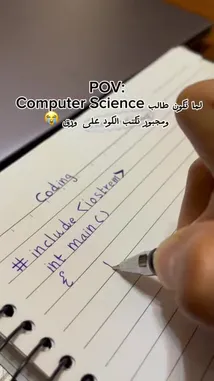 POV:
لما تكون طالب Computer Science
ومجبور تكتب الكود على ورق 😭
Coding
# include <iostream>
int main()
{